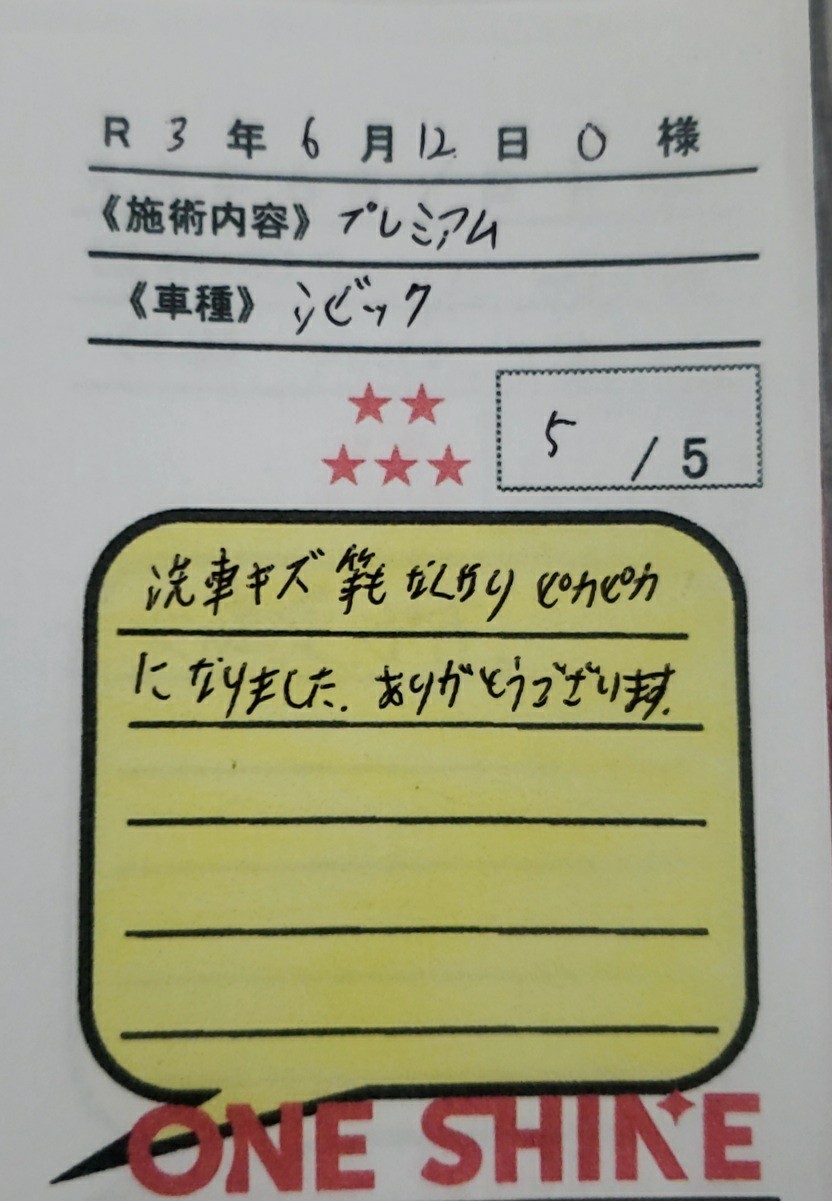 R 3 年 6 月 12 日 O 様
《施術内容》 プレミアム
《車種》 シビック
★★
★★★
5 / 5
洗車キズ等もなくなり ピカピカ
になりました. ありがとうございます.
ONE SHINE